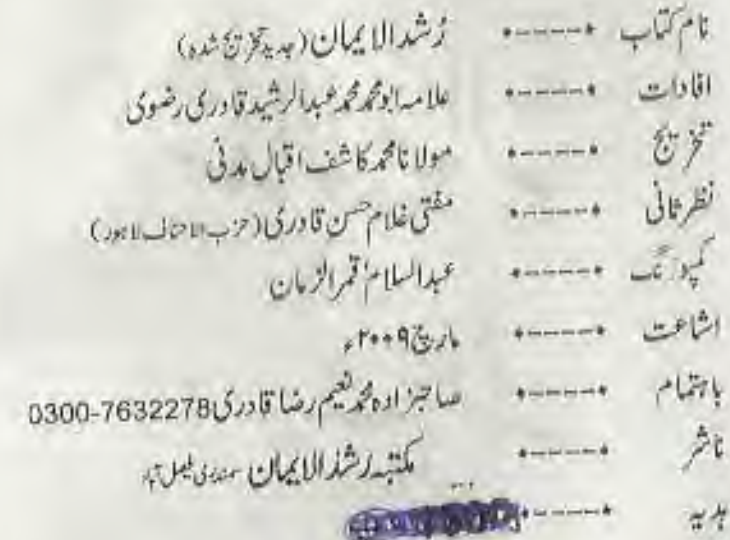 نام کتاب ----- رُشد الایمان (جدید تخریج شدہ)
افادات ----- علامہ ابو محمد محمد عبدالرشید قادری رضوی
تخریج ----- مولانا محمد کاشف اقبال مدنی
نظر ثانی ----- مفتی غلام حسن قادری (حزب الاحناف لاہور)
کمپوزنگ ----- عبدالسلام قمر الزمان
اشاعت ----- مارچ ۲۰۰۹ء
باہتمام ----- صاحبزادہ محمد نعیم رضا قادری 0300-7632278
ناشر ----- مکتبہ رُشد الایمان سمندری فیصل آباد
ہدیہ -----